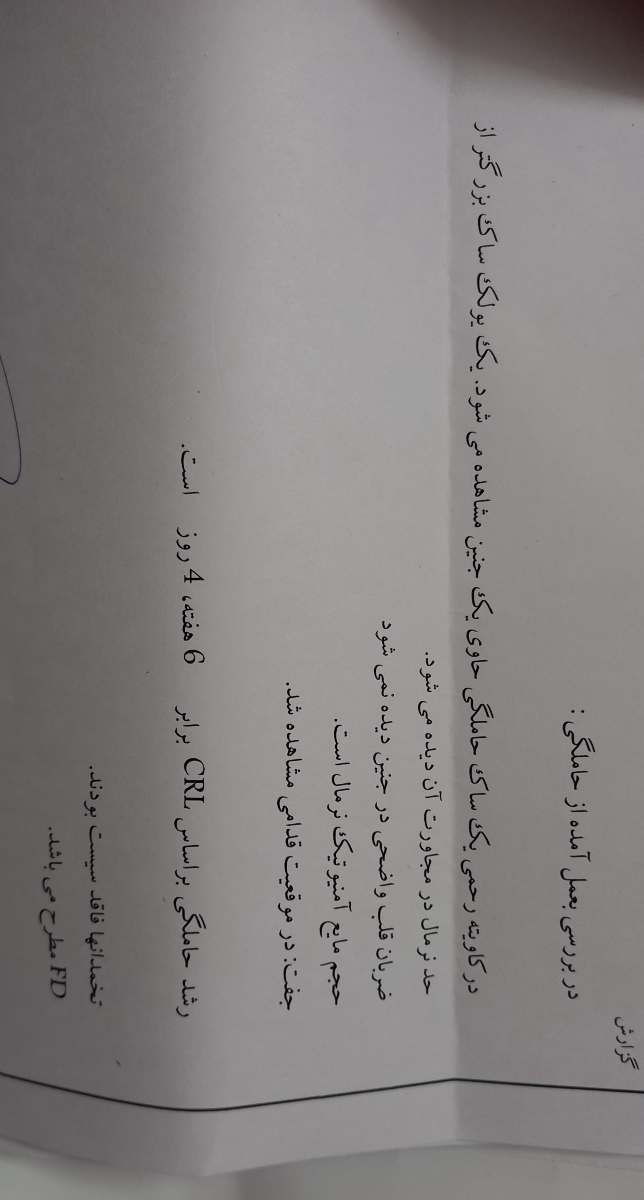 گزارش
در بررسی بعمل آمده از حاملگی :
در کاویته رحمی یک ساک حاملگی حاوی یک جنین مشاهده می شود. یک یولک ساک بزرگتر از
حد نرمال در مجاورت آن دیده می شود.
ضربان قلب واضحی در جنین دیده نمی شود
حجم مایع آمنیوتیک نرمال است.
جفت: در موقعیت قدامی مشاهده شد.
رشد حاملگی براساس CRL برابر 6 هفته، 4 روز است.
تخمدانها فاقد سیست بودند.
FD مطرح می باشد.